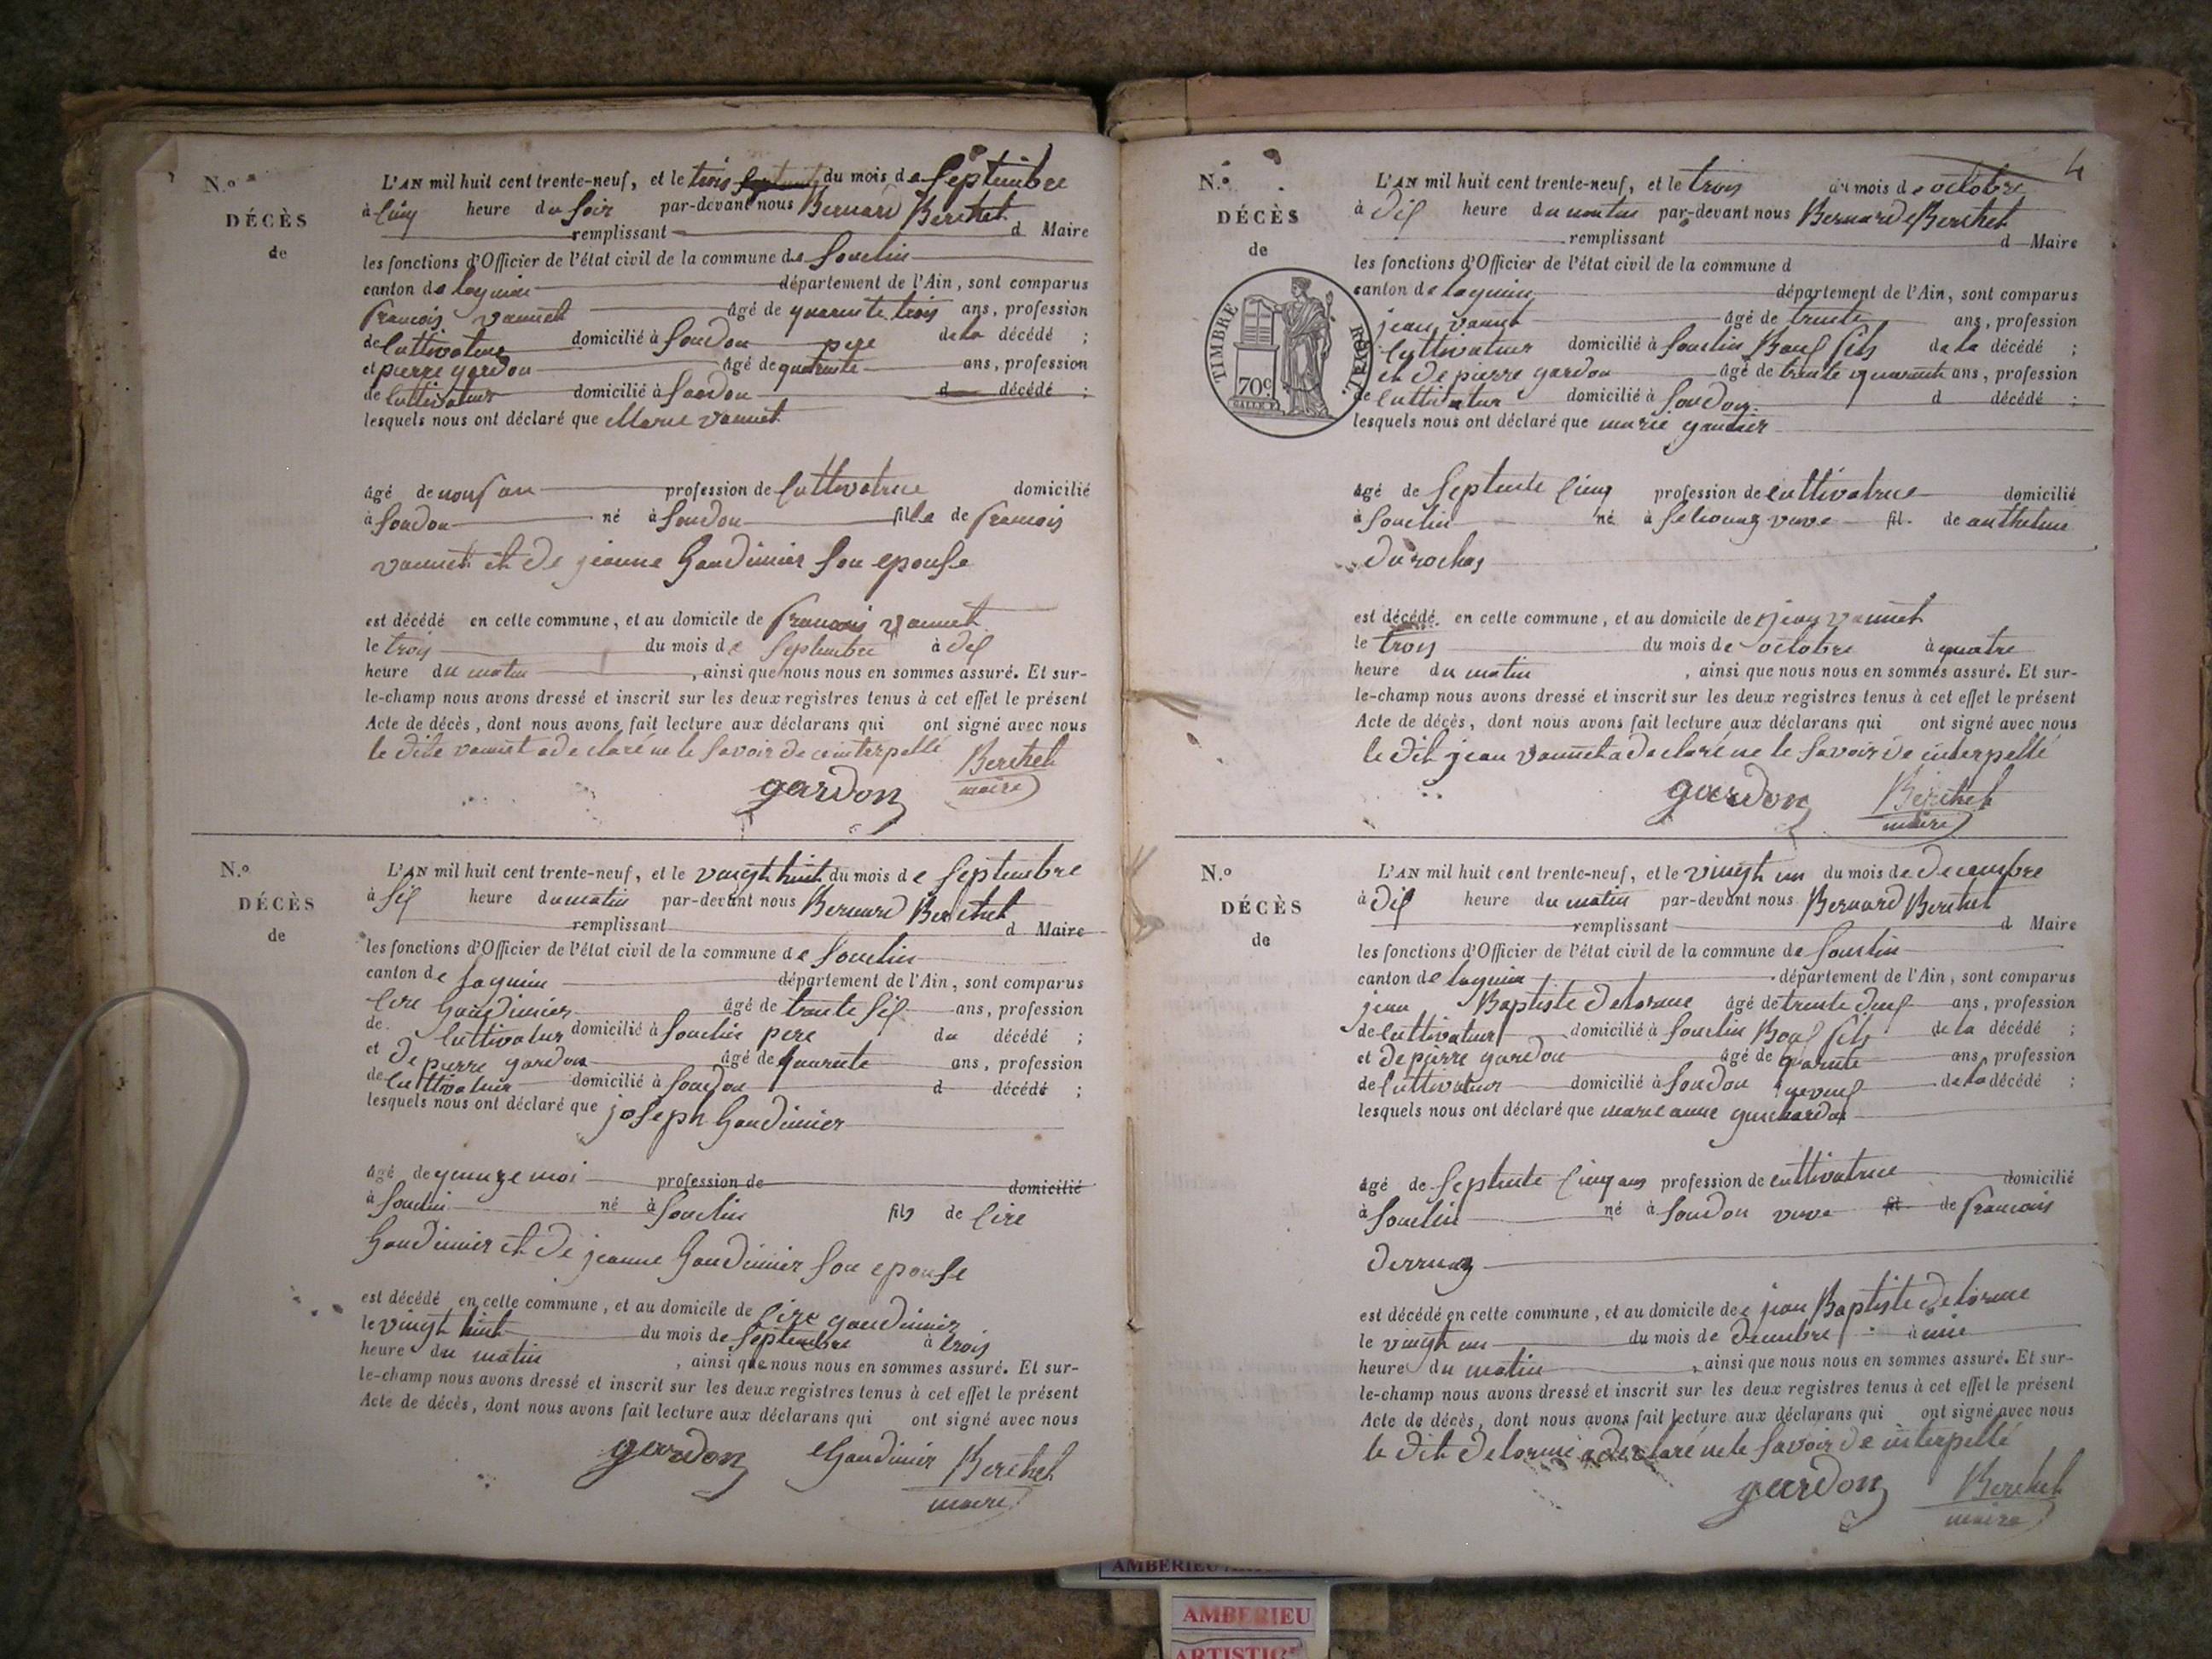 N.o
DÉCÈS
de
L'AN mil huit cent trente-neuf, et le trois du mois de Septembre
à cinq heure du soir par-devant nous Bernard Berthet
remplissant d Maire
les fonctions d'Officier de l'état civil de la commune de Souclin
canton de lagnieu département de l'Ain, sont comparus
francois vannet âgé de quarente trois ans, profession
de cultivateur domicilié à Soudon pere de la décédé ;
et pierre gardon âgé de quarente ans, profession
de cultivateur domicilié à Soudon d décédé ;
lesquels nous ont déclaré que Marie vannet
âgé de neuf an profession de cultivatrice domicilié
à Soudon né à Soudon fille de francois
vannet et de jeanne Gaudimier son epouse
est décédé en cette commune, et au domicile de francois vannet
le trois du mois de Septembre à dix
heure du matin, ainsi que nous nous en sommes assuré. Et sur-
le-champ nous avons dressé et inscrit sur les deux registres tenus à cet effet le présent
Acte de décès, dont nous avons fait lecture aux déclarans qui ont signé avec nous
le dite vannet a declaré ne le savoir de ce interpellé Berthet
gardon maire
N.o
DÉCÈS
de
L'AN mil huit cent trente-neuf, et le vingt huit du mois de Septembre
à six heure du matin par-devant nous Bernard Berthet
remplissant d Maire
les fonctions d'Officier de l'état civil de la commune de Souclin
canton de lagnieu département de l'Ain, sont comparus
cire Gaudimier âgé de trante six ans, profession
de cultivatur domicilié à Souclin pere du décédé ;
et de pierre gardon âgé de quarente ans, profession
de cultivatur domicilié à Soudon d décédé ;
lesquels nous ont déclaré que joseph Gaudimier
âgé de quinze moi profession de domicilié
à Souclin né à Souclin fils de cire
Gaudimier et de jeanne Gaudimier son epouse
est décédé en cette commune, et au domicile de cire gaudimier
le vingt huit du mois de Septembre à trois
heure du matin, ainsi que nous nous en sommes assuré. Et sur-
le-champ nous avons dressé et inscrit sur les deux registres tenus à cet effet le présent
Acte de décès, dont nous avons fait lecture aux déclarans qui ont signé avec nous
gardon Gaudimier Berthet
maire
4
N.o
DÉCÈS
de
TIMBRE ROYAL
70c.
L'AN mil huit cent trente-neuf, et le trois du mois de octobre
à dix heure du matin par-devant nous Bernard Berthet
remplissant d Maire
les fonctions d'Officier de l'état civil de la commune d
canton de lagnieu département de l'Ain, sont comparus
jean vannet âgé de trente ans, profession
de cultivateur domicilié à Souclin Baux fils de la décédé ;
et de pierre gardon âgé de trente quarente ans, profession
de cultivatur domicilié à Soudon d décédé ;
lesquels nous ont déclaré que marie gaudier
âgé de Septente cinq profession de cultivatrice domicilié
à Souclin né à veuve fil de anthelme
durochas
est décédé en cette commune, et au domicile de jean vannet
le trois du mois de octobre à quatre
heure du matin, ainsi que nous nous en sommes assuré. Et sur-
le-champ nous avons dressé et inscrit sur les deux registres tenus à cet effet le présent
Acte de décès, dont nous avons fait lecture aux déclarans qui ont signé avec nous
le dit jean vannet a declaré ne le savoir de interpellé
gardon Berthet
maire
N.o
DÉCÈS
de
L'AN mil huit cent trente-neuf, et le vingt un du mois de decembre
à dix heure du matin par-devant nous Bernard Berthet
remplissant d Maire
les fonctions d'Officier de l'état civil de la commune de Souclin
canton de lagnieu département de l'Ain, sont comparus
jean Baptiste delorme âgé de trente deux ans, profession
de cultivateur domicilié à Souclin Baux fils de la décédé ;
et de pierre gardon âgé de quarente ans, profession
de cultivatur domicilié à Soudon neveux de la décédé ;
lesquels nous ont déclaré que marie anne guichardon
âgé de Septente cinq ans profession de cultivatrice domicilié
à Souclin né à Soudon veuve fil de francois
derruaz
est décédé en cette commune, et au domicile de jean Baptiste delorme
le vingt un du mois de decembre à une
heure du matin, ainsi que nous nous en sommes assuré. Et sur-
le-champ nous avons dressé et inscrit sur les deux registres tenus à cet effet le présent
Acte de décès, dont nous avons fait lecture aux déclarans qui ont signé avec nous
le dit delorme a declaré ne le savoir de interpellé
gardon Berthet
maire
AMBERIEU
AMBERIEU
ARTISTIC